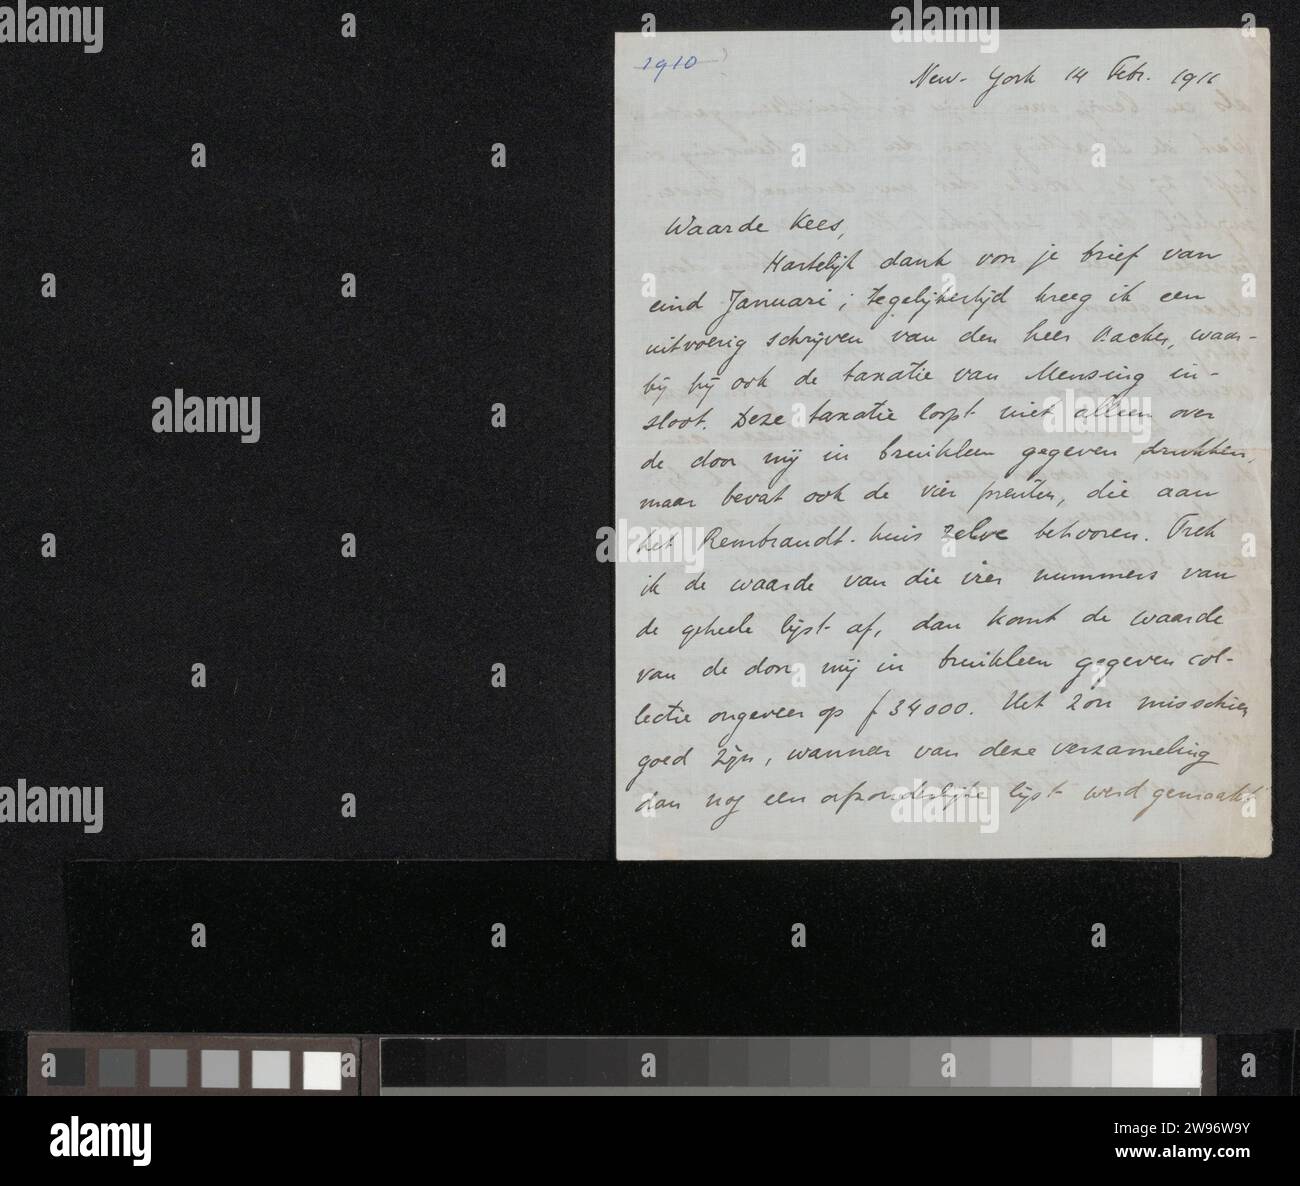 1910
New-York 14 Febr. 1911
Waarde Kees,
Hartelijk dank voor je brief van
eind Januari; tegelijkertijd kreeg ik een
uitvoerig schrijven van den heer Backer, waar-
bij hij ook de taxatie van Mensing in-
sloot. Deze taxatie loopt niet alleen over
de door mij in bruikleen gegeven drukken,
maar bevat ook de vier prenten, die aan
het Rembrandt-huis zelve behooren. Trek
ik de waarde van die vier nummers van
de geheele lijst af, dan komt de waarde
van de door mij in bruikleen gegeven col-
lectie ongeveer op f 34000. Het zou misschien
goed zijn, wanneer van deze verzameling
dan nog een afzonderlijke lijst werd gemaakt
alamy
Image ID: 2W96W9Y
www.alamy.com